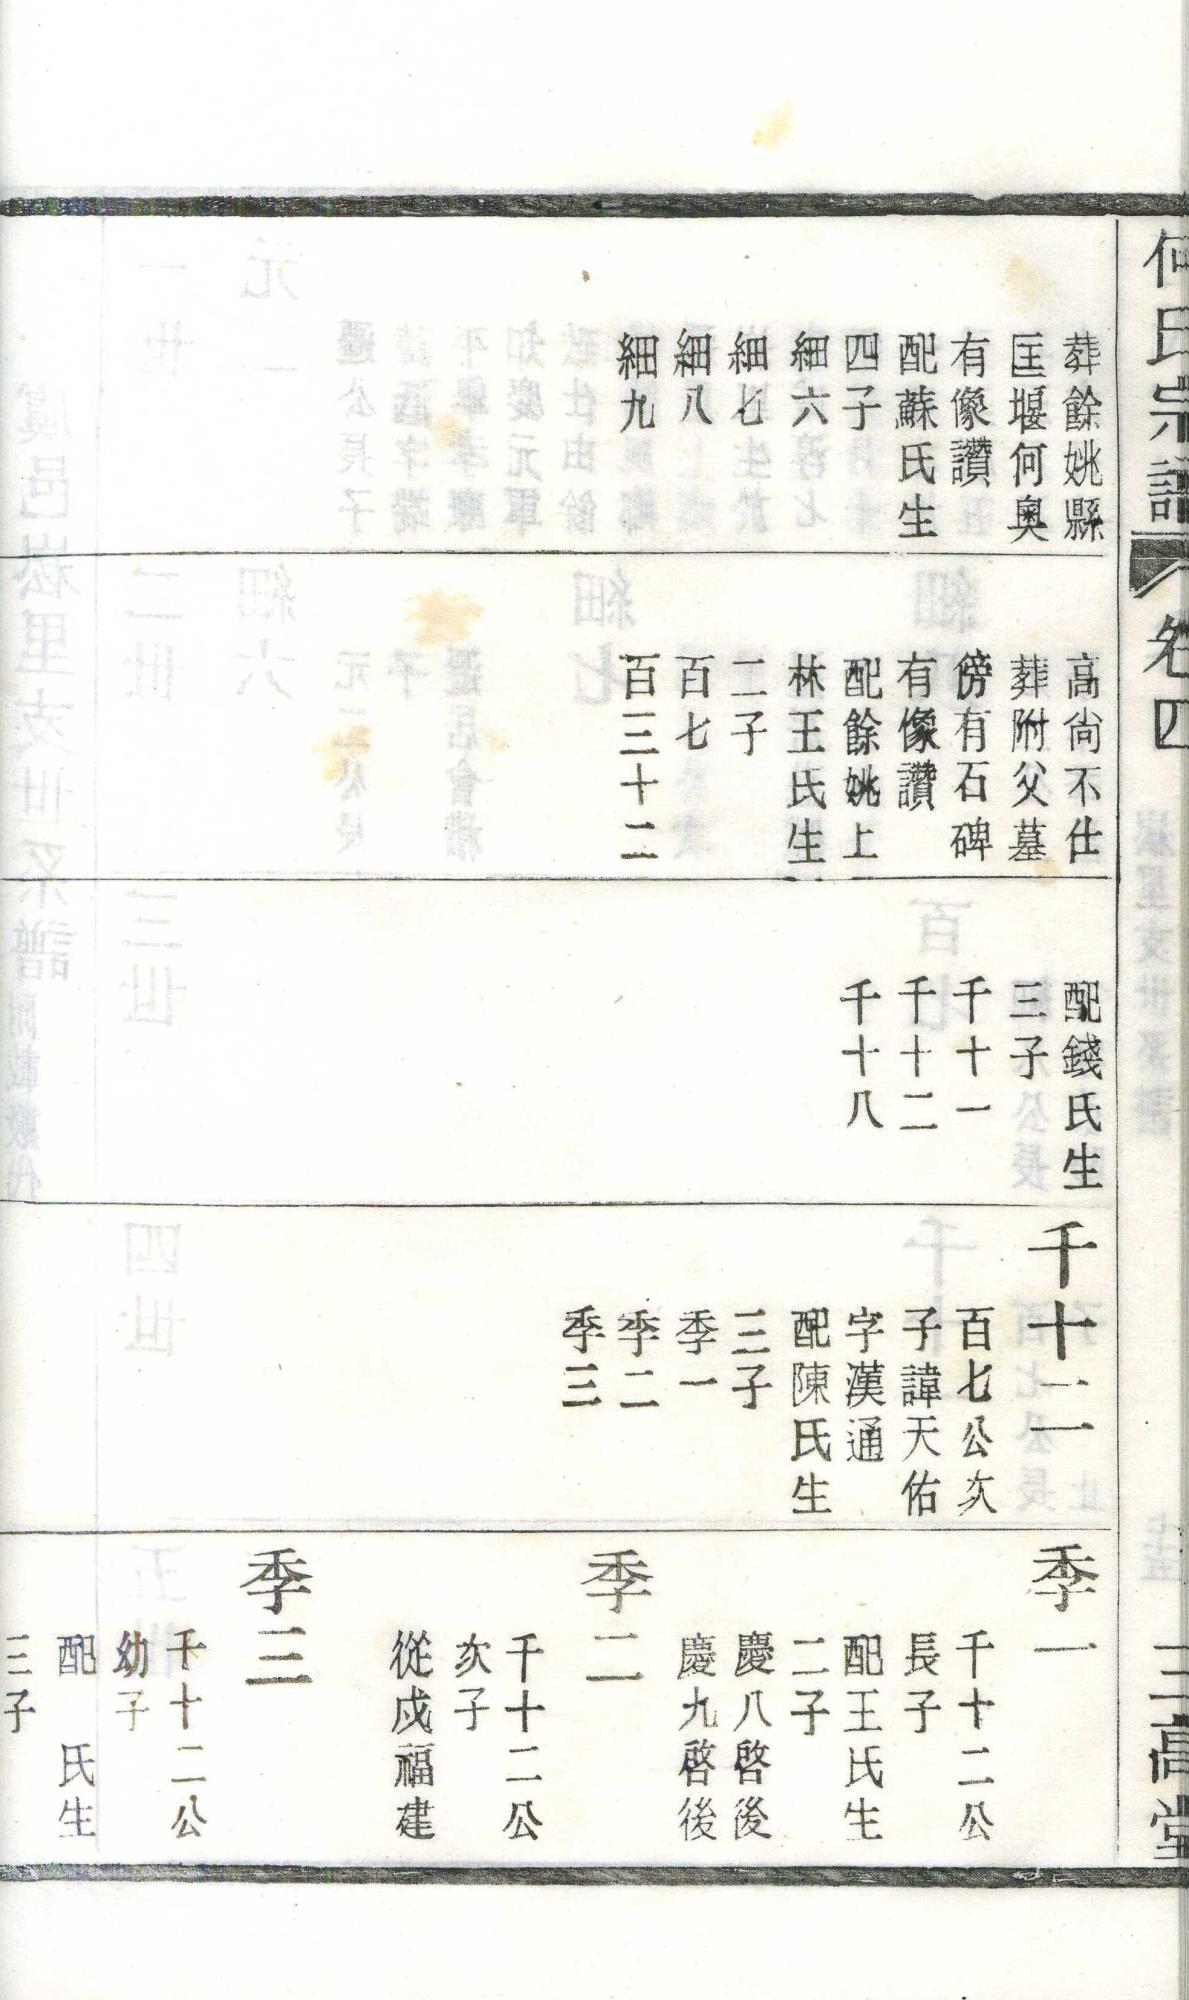 何氏宗譜
卷四
三高堂
葬餘姚縣
匡堰何奧
有像讚
配蘇氏生
四子
細六
細七
細八
細九
高尙不仕
葬附父墓
傍有石碑
有像讚
配餘姚上
林王氏生
二子
百七
百三十二
配錢氏生
三子
千十一
千十二
千十八
千十二
百七公次
子諱天佑
字漢通
配陳氏生
三子
季一
季二
季三
季一
千十二公
長子
配王氏生
二子
慶八啓後
慶九啓後
季二
千十二公
次子
從戍福建
季三
千十二公
幼子
配　氏生
三子